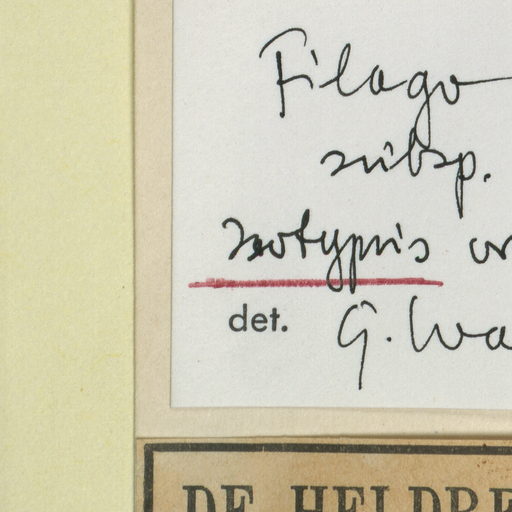 Filago
subsp.
isotypus
det. G. Wa
DE HELDRE